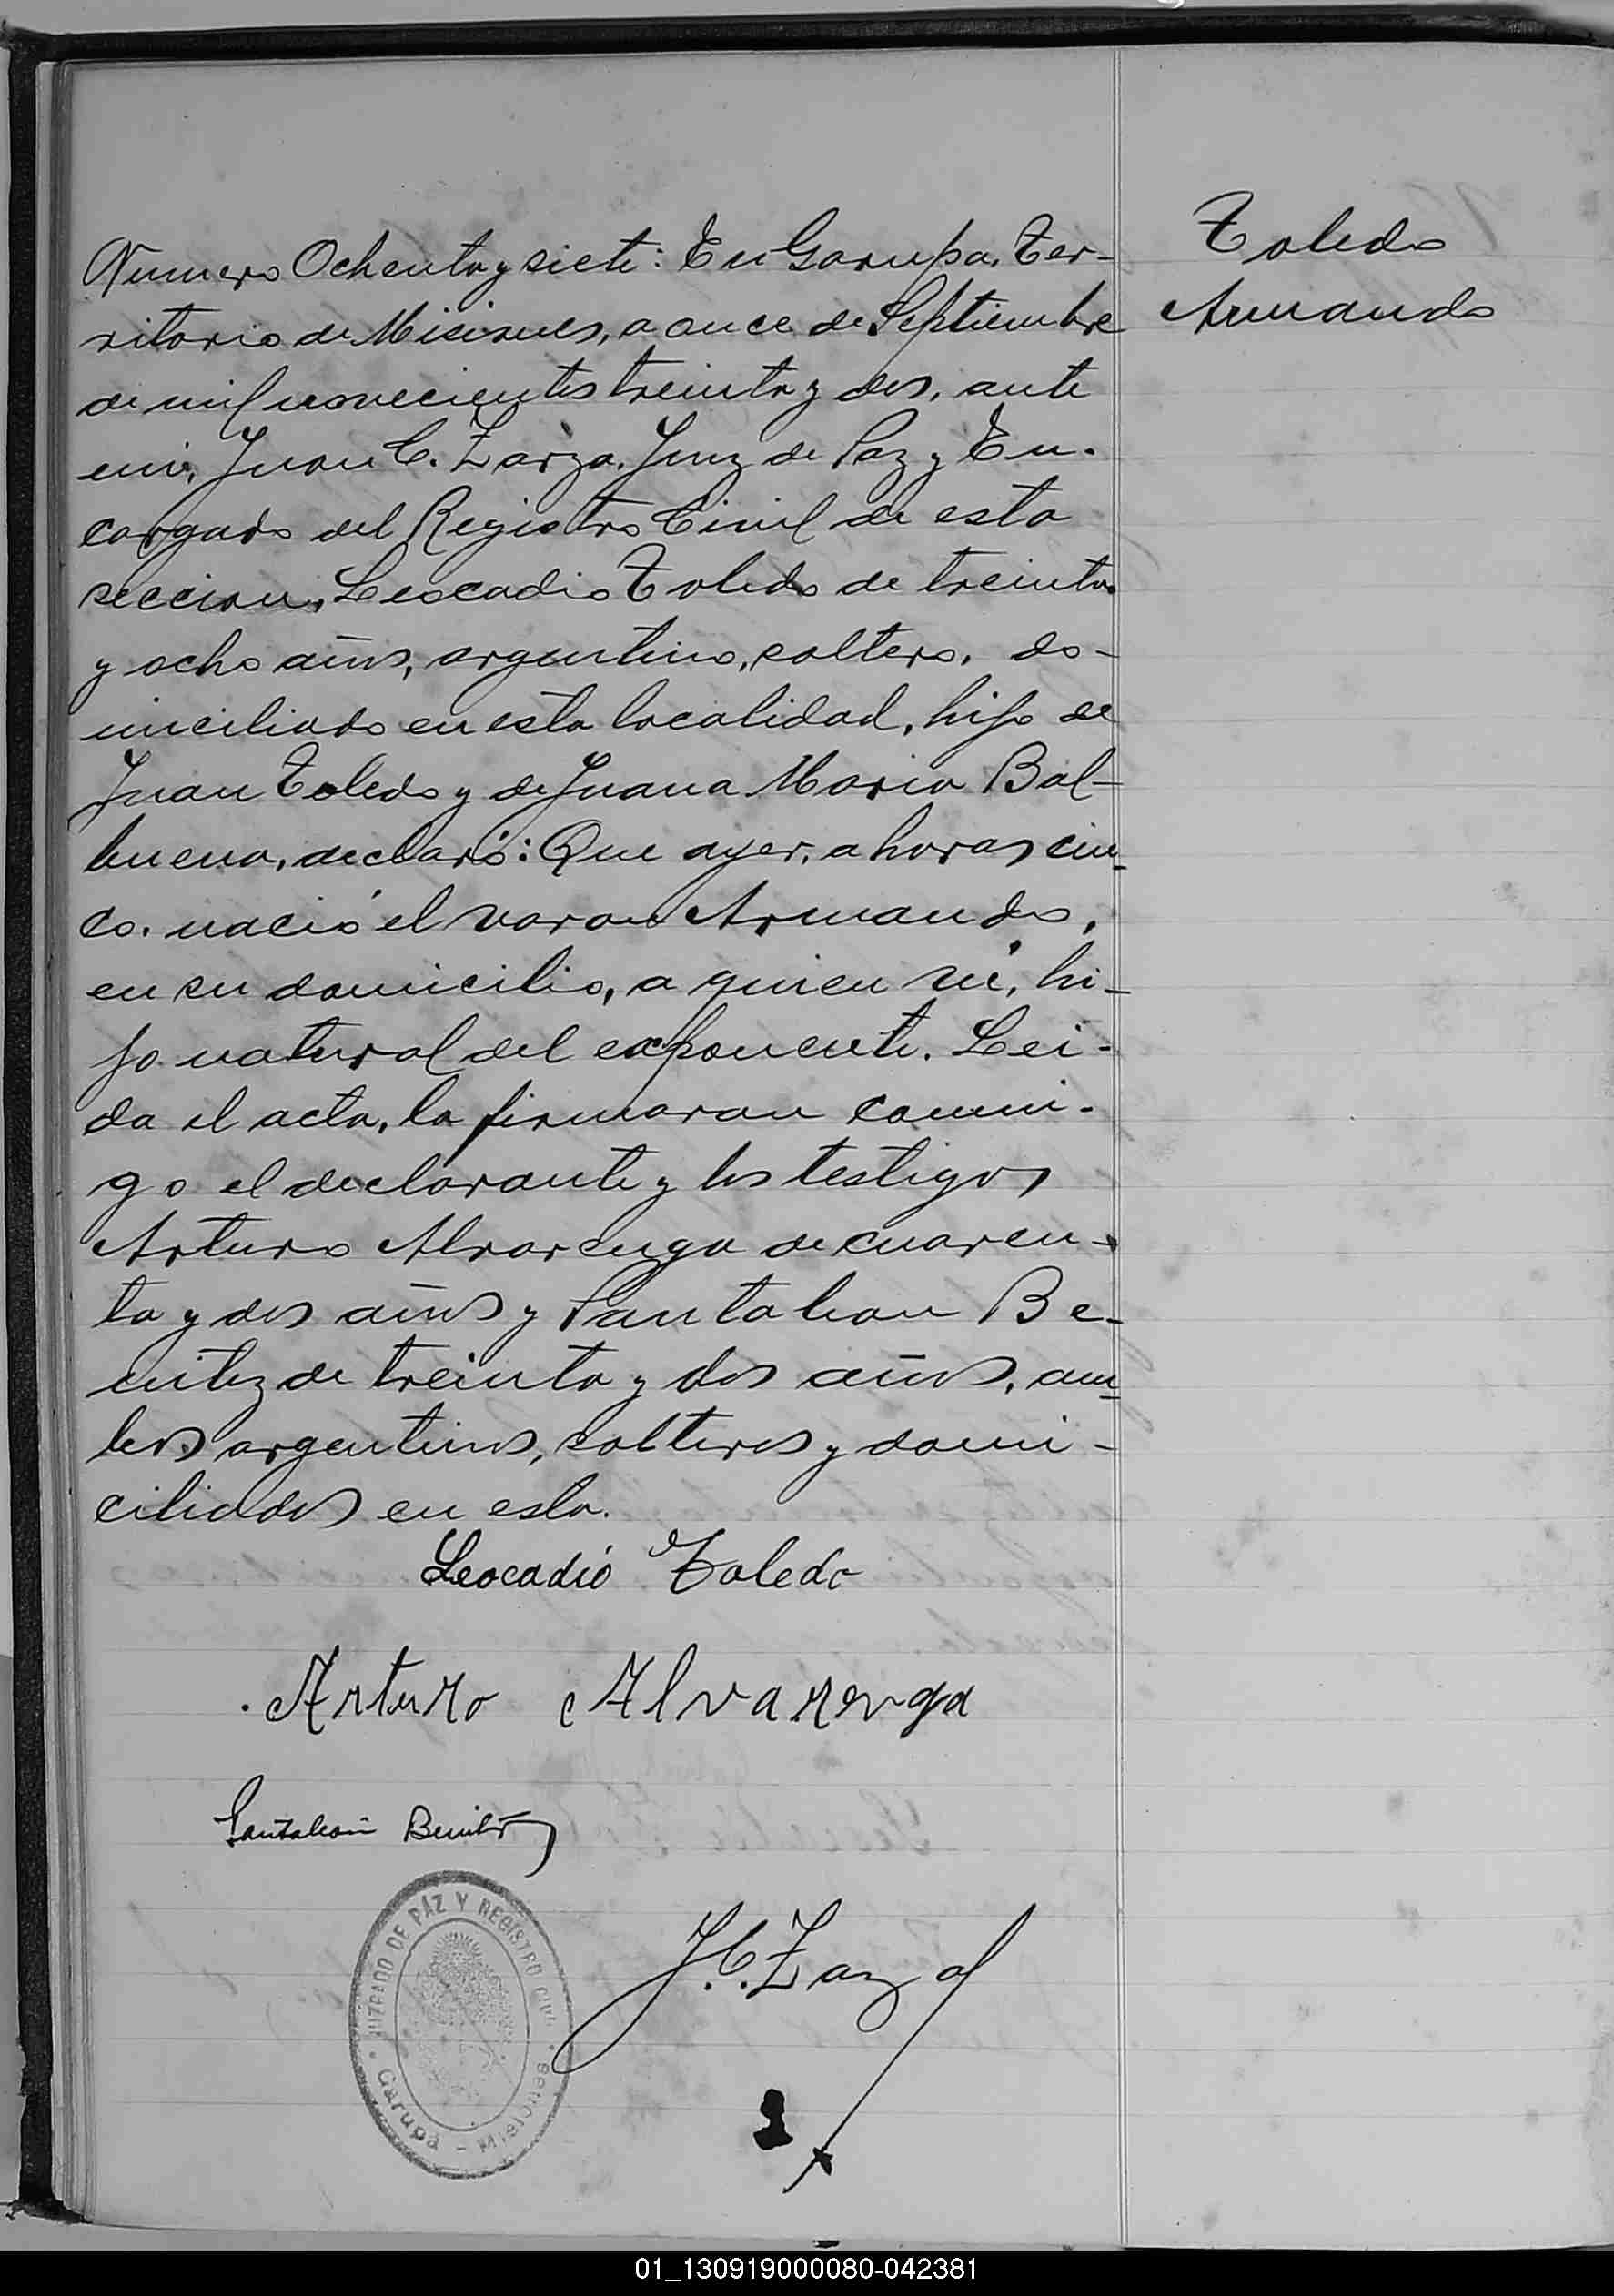 Numero Ochenta y siete: En Garupa, Ter-
ritorio de Misiones, a once de Septiembre
de mil novecientos treinta y dos, ante
mi, Juan C. Zarza, Juez de Paz y En-
cargado del Registro Civil de esta
seccion, Leocadio Toledo de treinta
y ocho años, argentino, soltero, do-
miciliado en esta localidad, hijo de
Juan Toledo y de Juana Maria Bal-
buena, declaró: Que ayer, a horas cin-
co, nació el varon Armando,
en su domicilio, a quien vi, hi-
jo natural del exponente. Lei-
da el acta, la firmaron conmi-
go el declarante y los testigos
Arturo Alvarenga de cuaren-
ta y dos años y Pantaleon Be-
nitez de treinta y dos años, am-
bos argentinos, solteros y domi-
ciliados en esta.
Leocadio Toledo
Arturo Alvarenga
Pantaleon Benitez
J. C. Zarza
JUZGADO DE PAZ Y REGISTRO CIVIL
Garupá - Misiones
Toledo
Armando
01_130919000080-042381